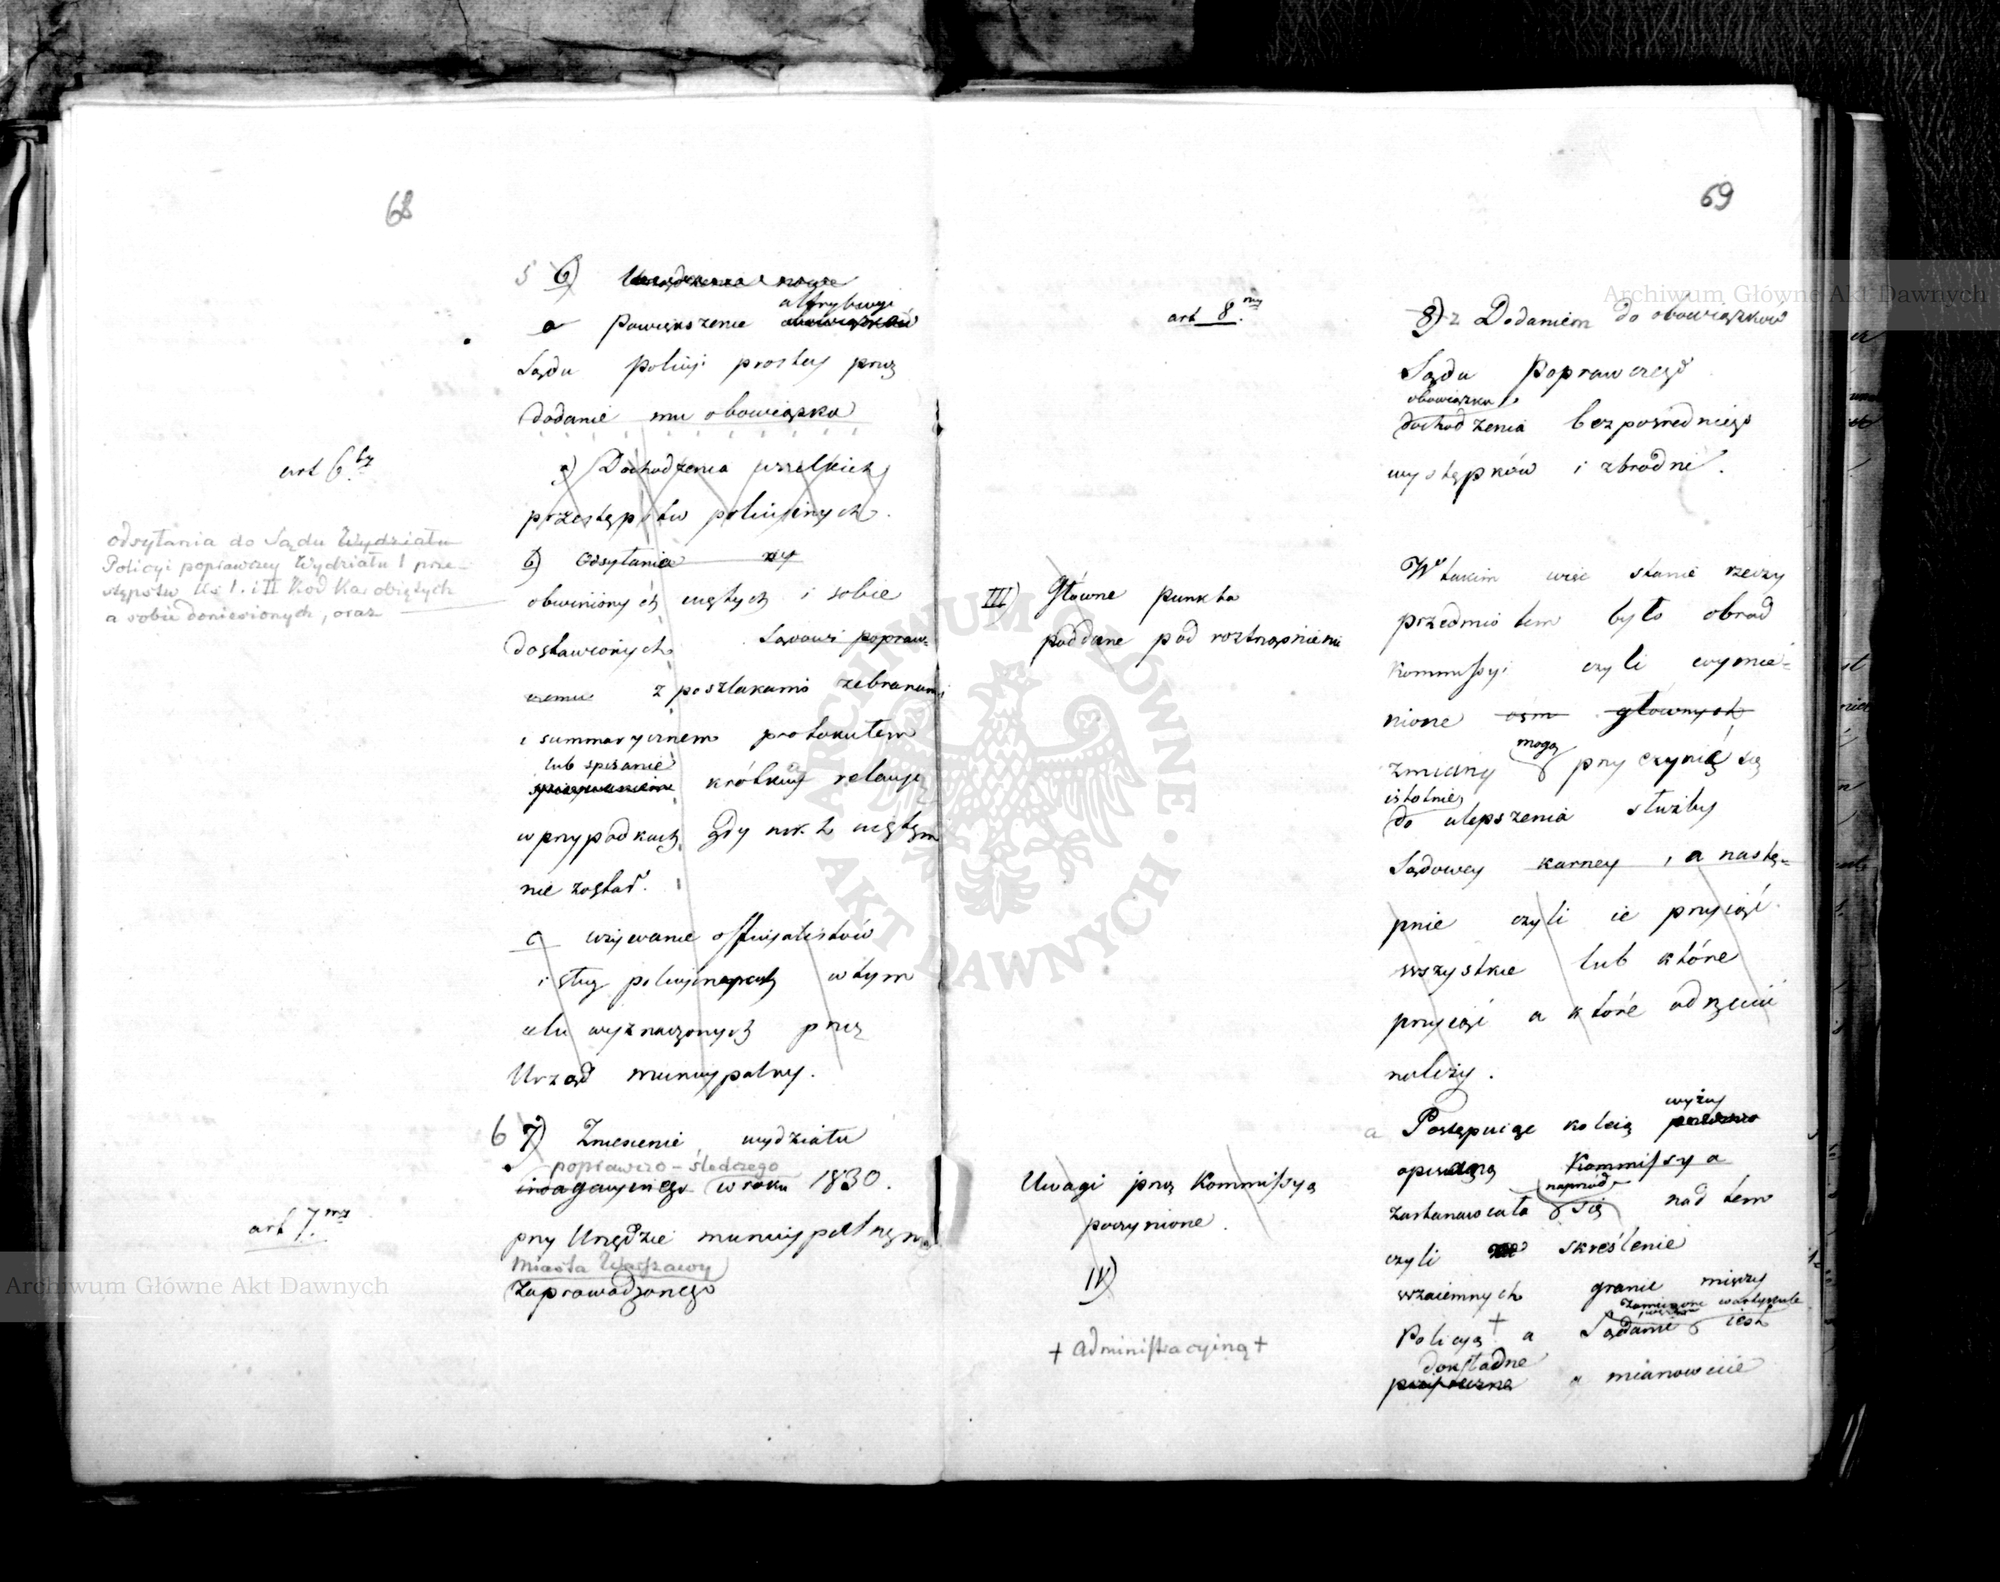 68
5 6)
attrybucyi
a Powiększenie
Sądu policyi prostey przez
dodanie mu obowiązku
art 6ty
a) Dochodzenia wszelkich
przestępstw policyinych.
odsyłania do Sądu Wydziału
Policyi poprawczey Wydziału I prze-
stępstw Ks. I. i II Kod Kar obiętych
a sobie doniesionych, oraz
b) Odsyłania
obwinionych uiętych i sobie
dostawionych Sądowi popraw-
czemu z poszlakami zebranemi
i summarycznem protokułem
lub spisanie
krótkiey relacyi
w przypadkach gdy nikt uiętym
nie został.
c) wzywanie officyalistów
i sług policyinych w tym
celu wyznaczonych przez
Urząd municypalny.
6 7) Zniesienie wydziału
poprawczo-śledczego
indagacyinego w roku 1830.
art 7my
przy Urzędzie municypalnym
Miasta Warszawy
zaprowadzonego
69
art 8my
8) z Dodaniem do obowiązków
Sądu Poprawczego
obowiązku
dochodzenia bezpośredniego
występków i zbrodni.
III) Główne punkta
poddane pod roztrząśnienie
W takim więc stanie rzeczy
przedmiotem było obrad
Kommissyi czyli wymie-
nione ośm głównych
mogą
zmiany przyczynić się
istotnie
do ulepszenia służby
Sądowey karney, a nastę-
pnie czyli ie przyiąć
wszystkie lub które
przyiąć a które odrzucić
należy.
Uwagi przez Kommissyą
poczynione.
IV)
+ administracyiną +
wyżey
a Postępuiąc koleią
opisaną Kommissya
naprzód
zastanawiała się nad tem
czyli skreślenie
wzaiemnych granic między
zamieszone w artykule
Policyą + a Sądami iest
dokładne
a mianowicie
Archiwum Główne Akt Dawnych
Archiwum Główne Akt Dawnych
ARCHIWUM GŁÓWNE
AKT DAWNYCH